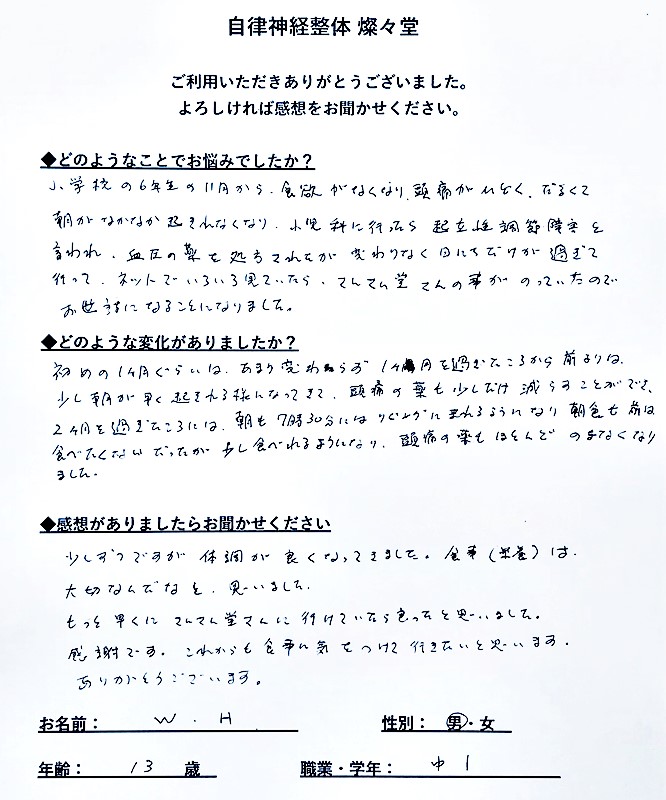 自律神経整体 燦々堂
ご利用いただきありがとうございました。
よろしければ感想をお聞かせください。
◆どのようなことでお悩みでしたか？
小学校の6年生の11月から、食欲がなくなり、頭痛がひどく、だるくて
朝がなかなか起きれなくなり、小児科に行ったら起立性調節障害と
言われ、血圧の薬も処方されたが変わりなく日にちだけが過ぎて
行って、ネットでいろいろ見ていたら、さんさん堂さんの事がのっていたので
お世話になることになりました。
◆どのような変化がありましたか？
初めの1ヶ月ぐらいは、あまり変わらず1ヶ月を過ぎたころから前よりは、
少し朝が早く起きれる様になってきて、頭痛の薬も少しだけ減らすことができ、
2ヶ月を過ぎたころには、朝も7時30分にはリビングに来れるようになり朝食も前は
食べたくないだったが少し食べれるようになり、頭痛の薬もほとんどのまなくなり
ました。
◆感想がありましたらお聞かせください
少しずつですが体調が良くなってきました。食事（栄養）は、
大切なんだなと、思いました。
もっと早くにさんさん堂さんに行けていたら良かったと思いました。
感謝です。これからも食事に気をつけて行きたいと思います。
ありがとうございます。
お名前： W.H 性別： 男・女
年齢： 13 歳 職業・学年： 中1